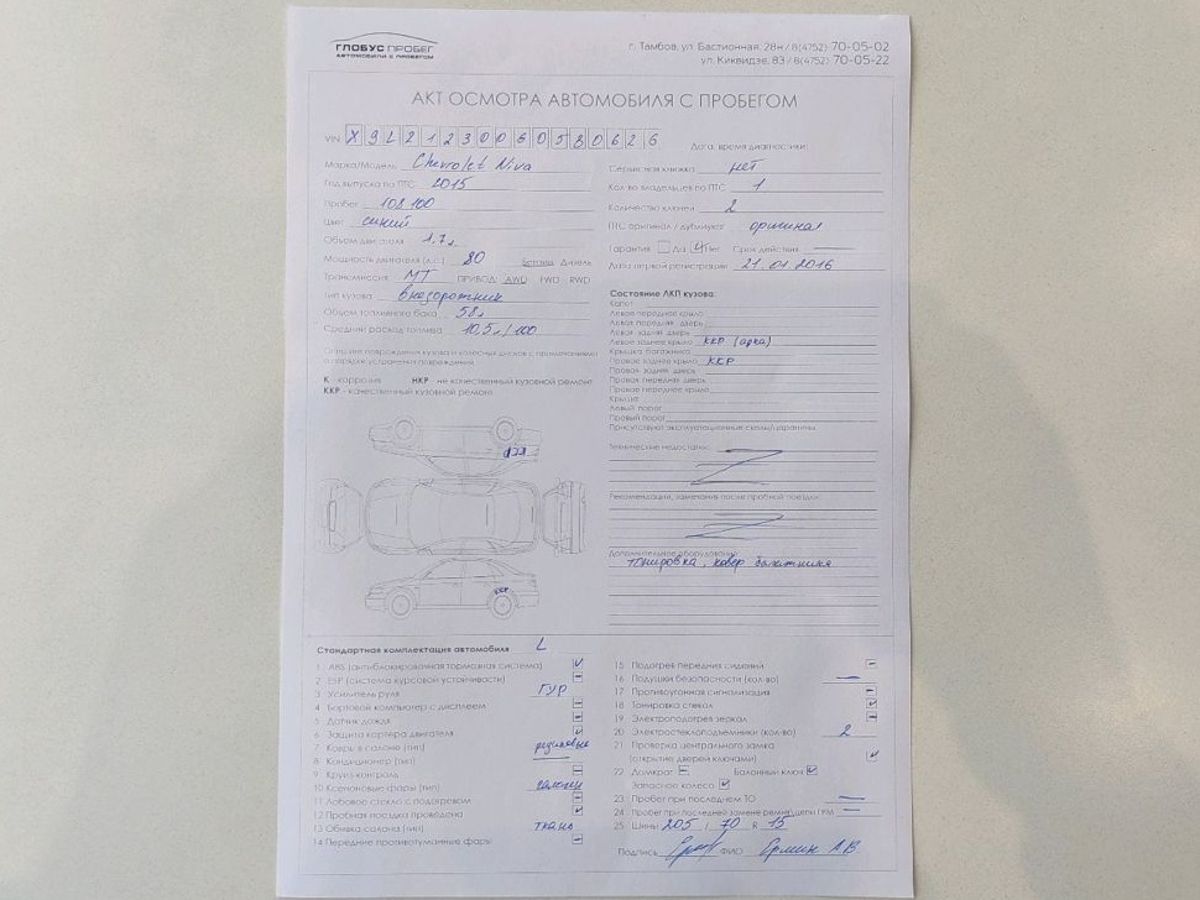 ГЛОБУС ПРОБЕГ
АВТОМОБИЛИ С ПРОБЕГОМ
г. Тамбов, ул. Бастионная, 28н / 8(4752) 70-05-02
ул. Киквидзе, 83 / 8(4752) 70-05-22
АКТ ОСМОТРА АВТОМОБИЛЯ С ПРОБЕГОМ
VIN X9L212300G0580626
Дата, время диагностики
Марка/Модель Chevrolet Niva
Год выпуска по ПТС 2015
Пробег 108 100
Цвет синий
Объем двигателя 1.7л
Мощность двигателя (л.с.) 80 Бензин Дизель
Трансмиссия МТ ПРИВОД: AWD FWD RWD
Тип кузова внедорожник
Объем топливного бака 58л
Средний расход топлива 10,5л/100
К - коррозия НКР - не качественный кузовной ремонт
ККР - качественный кузовной ремонт
ККР
ККР
Сервисная книжка нет
Кол-во владельцев по ПТС 1
Количество ключей 2
ПТС оригинал / дубликат оригинал
Гарантия Да Нет Срок действия
Дата первой регистрации 21.01.2016
Состояние ЛКП кузова:
Капот
Левое переднее крыло
Левая передняя дверь
Левая задняя дверь
Левое заднее крыло ККР (арка)
Крышка багажника
Правое заднее крыло ККР
Правая задняя дверь
Правая передняя дверь
Правое переднее крыло
Крыша
Левый порог
Правый порог
Присутствуют эксплуатационные сколы/царапины
Технические недостатки:
Рекомендации, замечания после пробной поездки:
Дополнительное оборудование:
тонировка, ковер багажника
Стандартная комплектация автомобиля L
1 ABS (антиблокировочная тормозная система)
2 ESP (система курсовой устойчивости)
3 Усилитель руля ГУР
4 Бортовой компьютер с дисплеем
5 Датчик дождя
6 Защита картера двигателя
7 Ковры в салоне (тип) резиновые
8 Кондиционер (тип)
9 Круиз-контроль
10 Ксеноновые фары (тип) галоген
11 Лобовое стекло с подогревом
12 Пробная поездка проведена
13 Обивка салона (тип) ткань
14 Передние противотуманные фары
15 Подогрев передних сидений
16 Подушки безопасности (кол-во)
17 Противоугонная сигнализация
18 Тонировка стекол
19 Электроподогрев зеркал
20 Электростеклоподъемники (кол-во) 2
21 Проверка центрального замка
(открытие дверей ключами)
22 Домкрат Балонный ключ
Запасное колесо
23 Пробег при последнем ТО
24 Пробег при последней замене ремня/цепи ГРМ
25 Шины 205 / 70 R 15
Подпись ФИО Ермин А.В